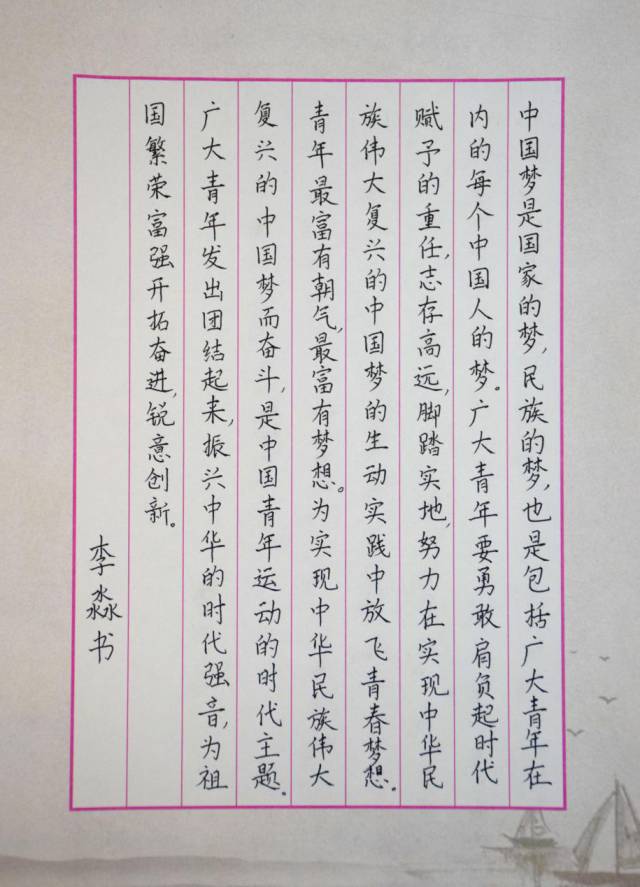 中国梦是国家的梦,民族的梦,也是包括广大青年在
内的每个中国人的梦。广大青年要勇敢肩负起时代
赋予的重任,志存高远,脚踏实地,努力在实现中华民
族伟大复兴的中国梦的生动实践中放飞青春梦想。
青年最富有朝气,最富有梦想。为实现中华民族伟大
复兴的中国梦而奋斗,是中国青年运动的时代主题。
广大青年发出团结起来,振兴中华的时代强音,为祖
国繁荣富强开拓奋进,锐意创新。
李淼书